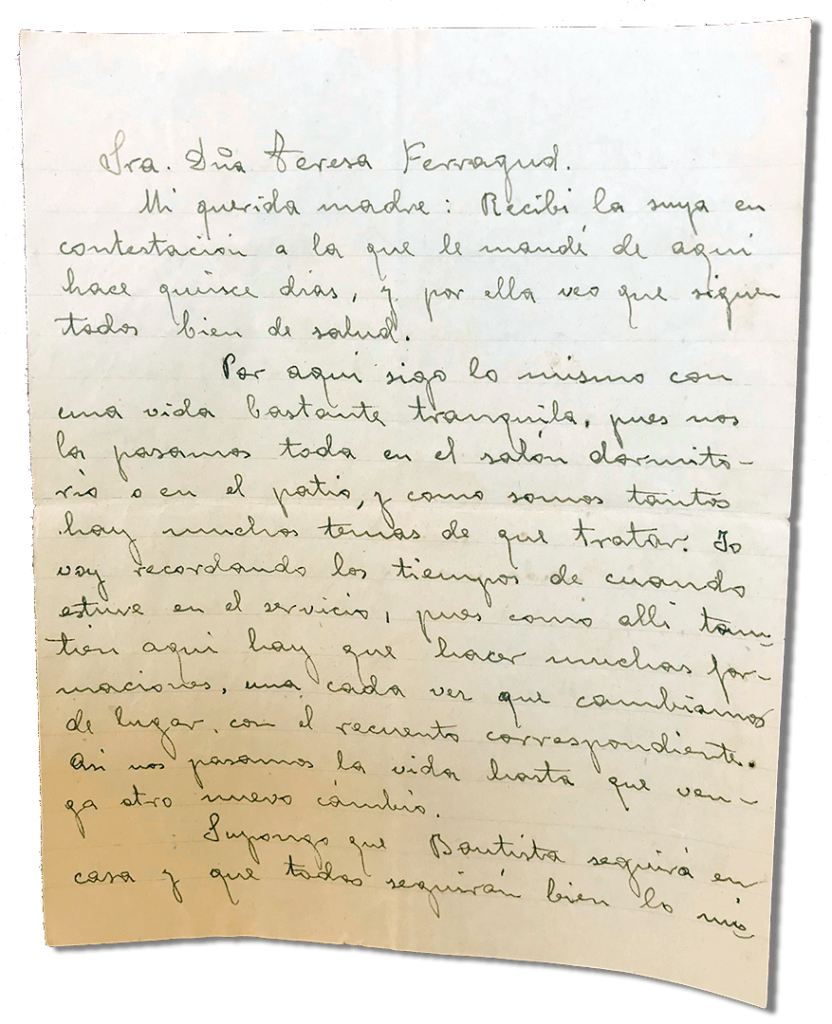 Sra. Dña Teresa Ferragud.
Mi querida madre: Recibi la suya en
contestación a la que le mandé de aqui
hace quince dias, y por ella veo que siguen
todos bien de salud.
Por aqui sigo lo mismo con
una vida bastante tranquila, pues nos
la pasamos toda en el salón dormito-
rio o en el patio, y como somos tantos
hay muchos temas de que tratar. Yo
voy recordando los tiempos de cuando
estuve en el servicio, pues como alli tam-
bien aqui hay que hacer muchas for-
maciones, una cada vez que cambiamos
de lugar, con el recuento correspondiente.
Asi nos pasamos la vida hasta que ven-
ga otro nuevo cámbio.
Supongo que Bautista seguirá en
casa y que todos seguirán bien lo mis-